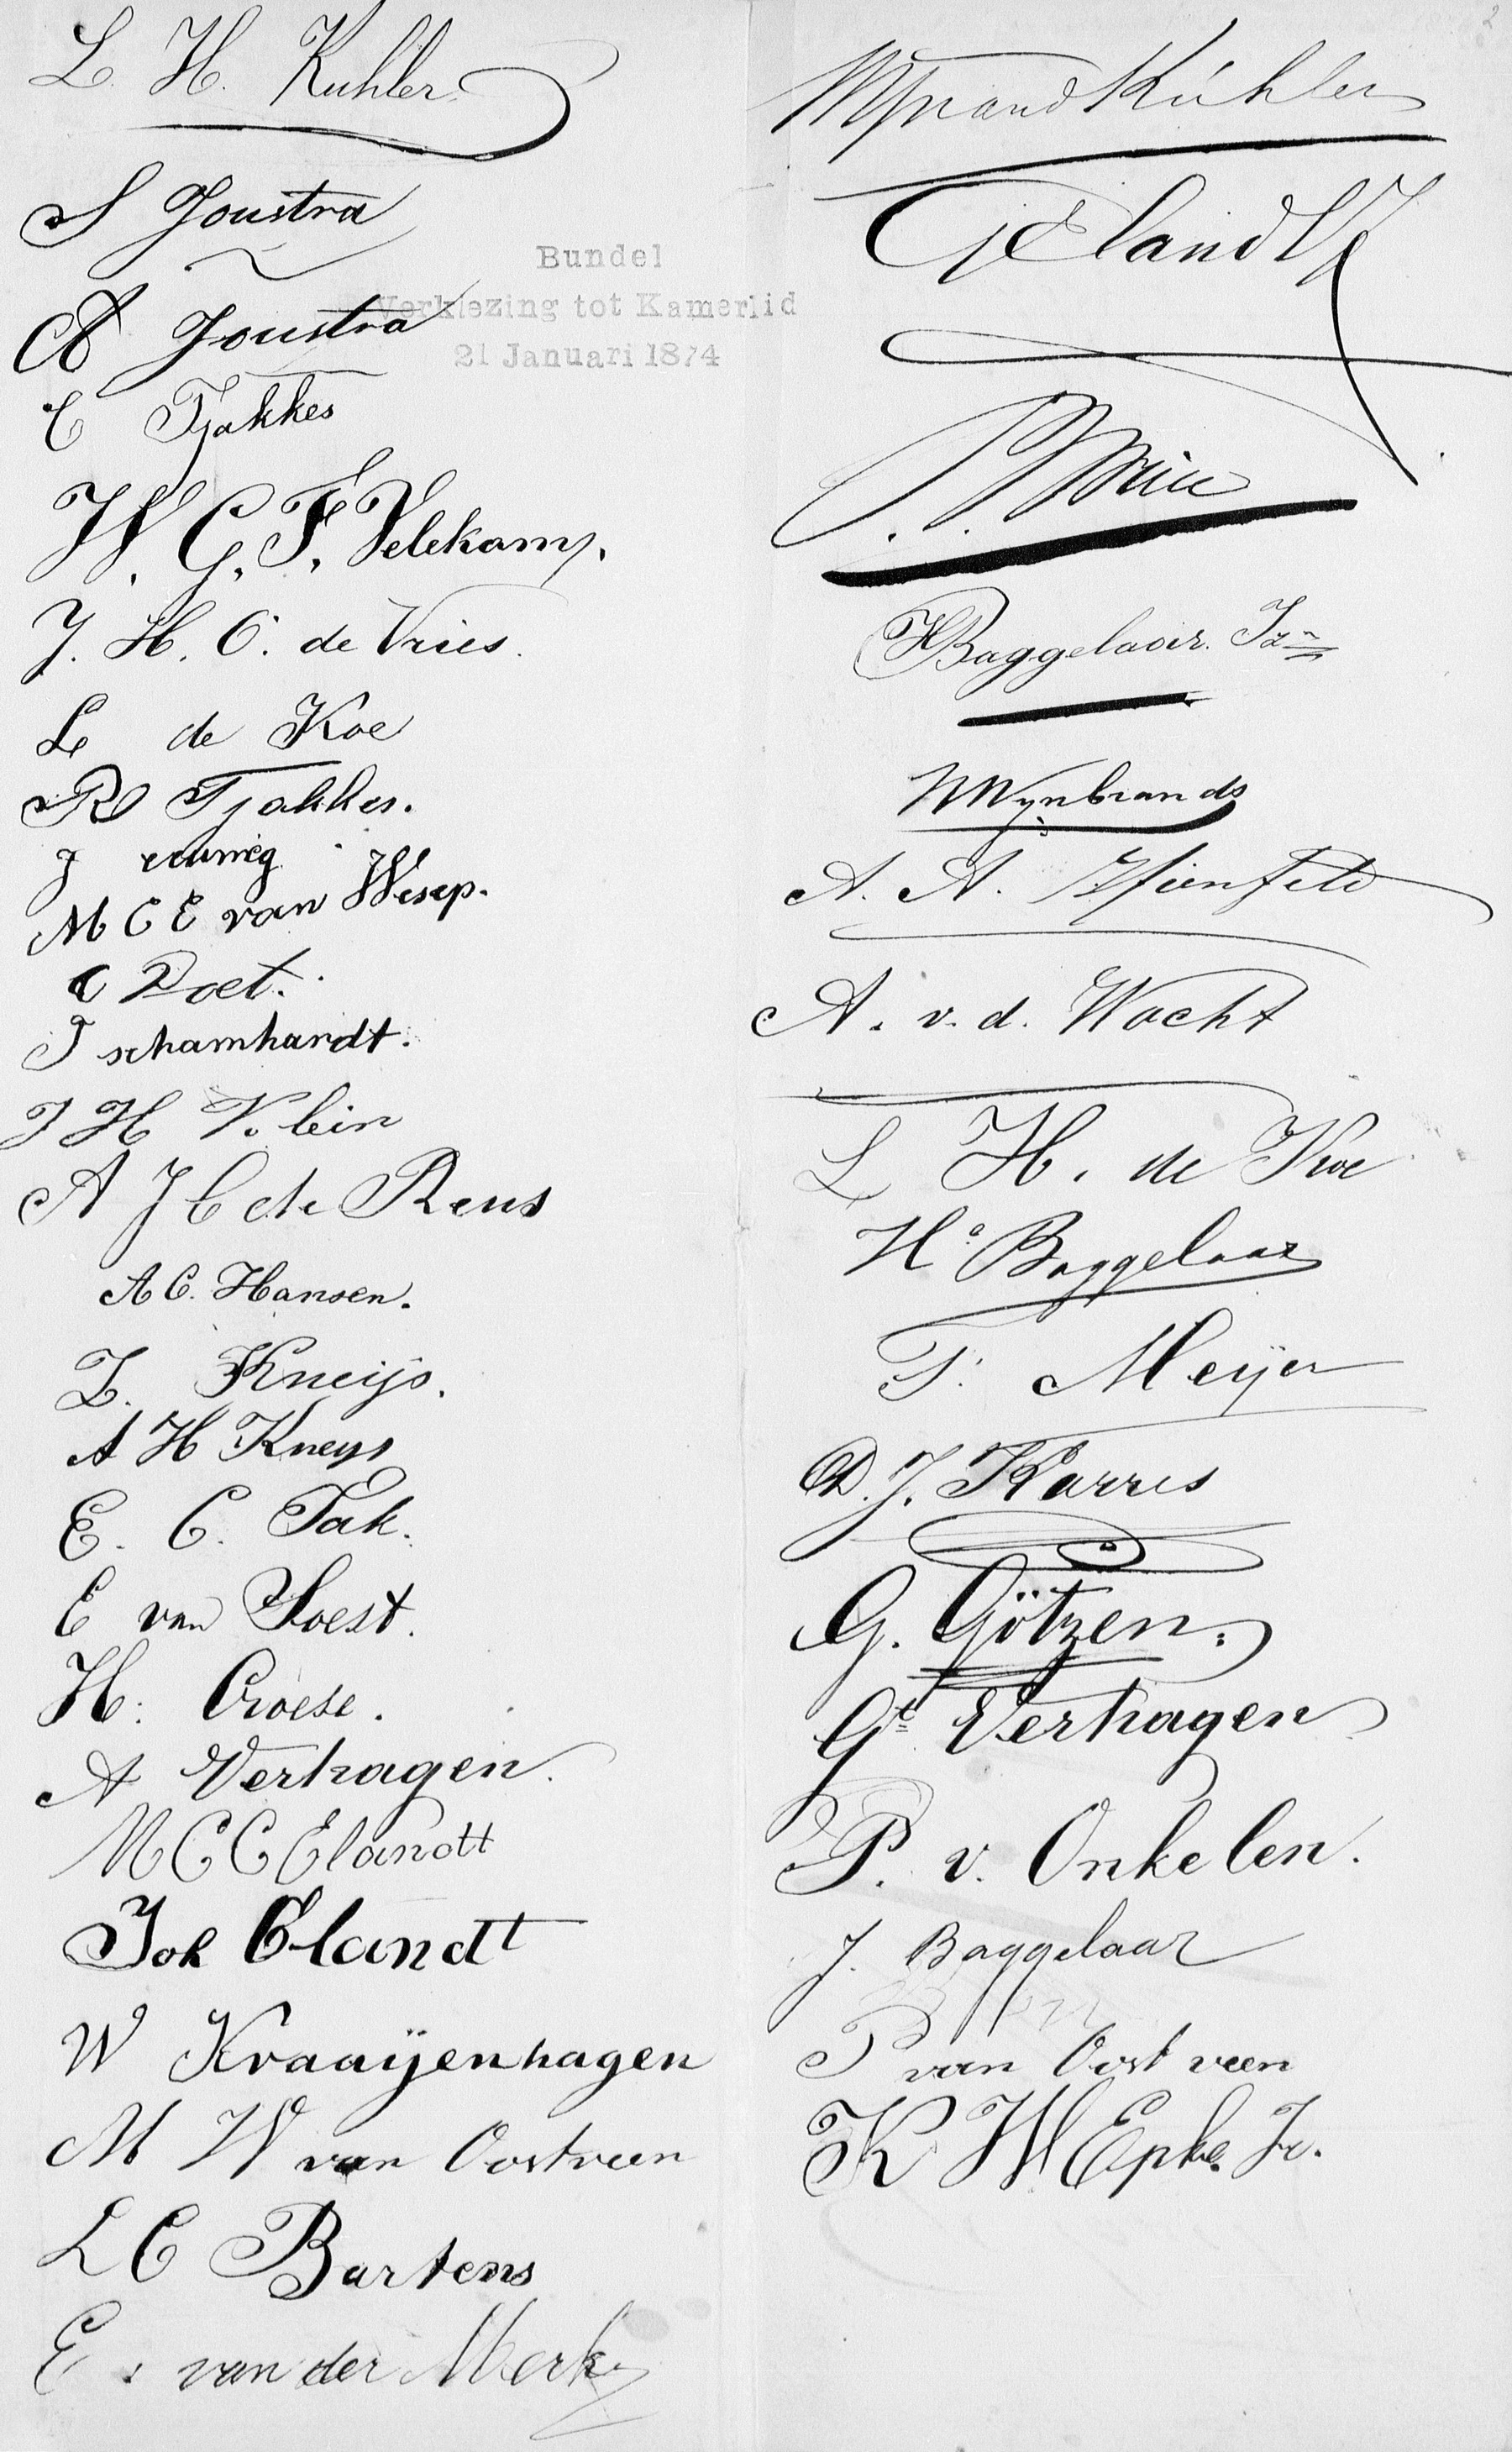 2
L. H. Kuhler
S Joustra
Bundel
Verkiezing tot Kamerlid
21 Januari 1874
A Joustra
C Tjakkes
W. G. F. Velekamp.
J. H. C. de Vries.
L de Koe
R Tjakkes.
J
M C E van Wesep.
C Poet.
J schamhardt.
J H Klein
A J C de Reus
A C. Hansen.
Z. Kneijs.
A H Kneys
E. C. Tak.
E van Soest.
H. Croese.
A Verhagen.
M C C Elandtt
Joh Elandt
W Kraaÿenhagen
M W van Oostveen
L C Bartens
E. van der Merk
Wynand Kúhler
G Elandt
H Baggelaar. Jzn
W Wynbrands
A. A.
A. v. d. Wacht
L H. de Koe
Ha Baggelaar
F. Meÿer
D. J. Karres
G. Götzen.
Gt Verhagen
P. v. Onkelen.
J. Baggelaar
P van Oostveen
K W Epke Jr.